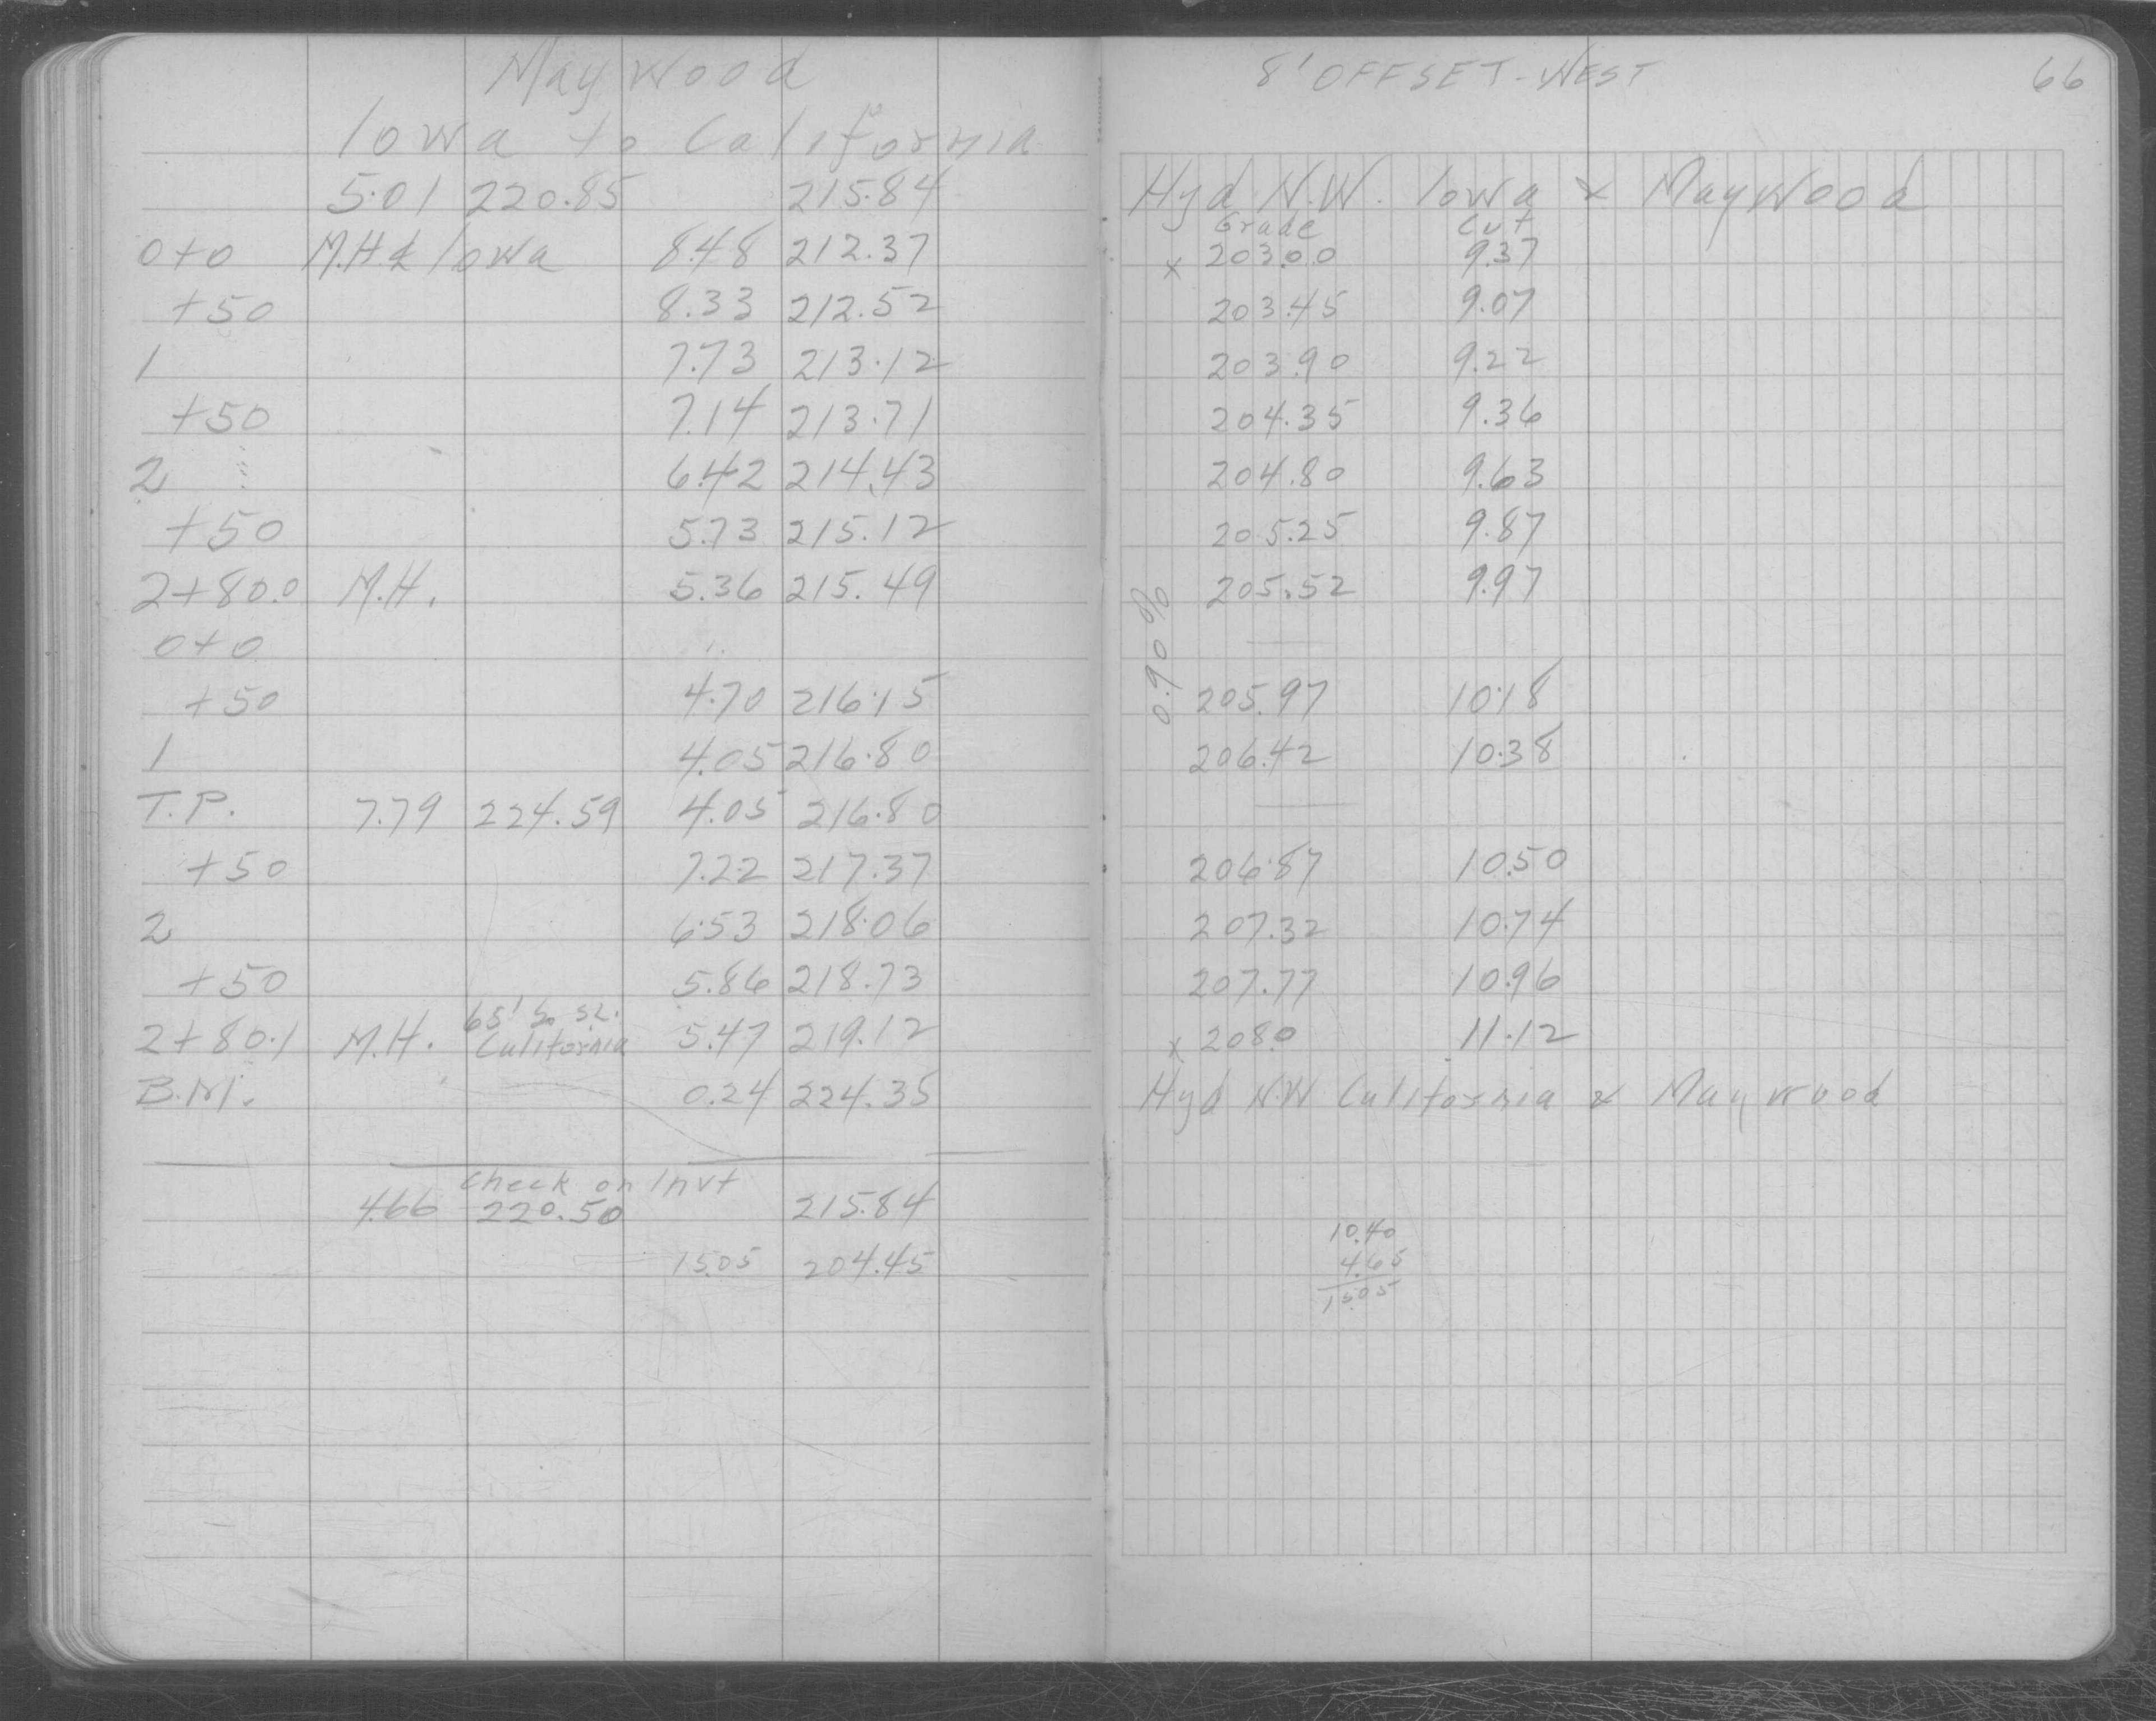 Maywood
Iowa to California
5.01 220.85 215.84
0+0 M.H ₵ Iowa 8.48 212.37
+50 8.33 212.52
1 7.73 213.12
+50 7.14 213.71
2 6.42 214.43
+50 5.73 215.12
2+80.0 M.H. 5.36 215.49
0+0
+50 4.70 216.15
1 4.05 216.80
T.P. 7.79 224.59 4.05 216.80
+50 7.22 217.37
2 6.53 218.06
+50 5.86 218.73
65' So. S.L.
2+80.1 M.H. California 5.47 219.12
B.M. 0.24 224.35
Check on Invt
4.66 220.50 215.84
15.05 204.45
8' OFFSET-WEST 66
Hyd N.W. Iowa & Maywood
Grade Cut
x 203.00 9.37
203.45 9.07
203.90 9.22
204.35 9.36
204.80 9.63
205.25 9.87
205.52 9.97
0.90%
205.97 10.18
206.42 10.38
206.87 10.50
207.32 10.74
207.77 10.96
x 208.0 11.12
Hyd N.W California & Maywood
10.40
4.65
15.05